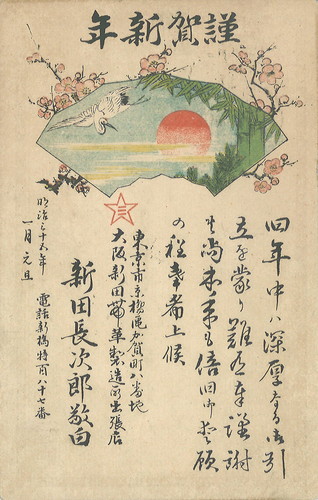 謹賀新年
旧年中ハ深厚なる御引
立を蒙り難有奉謹謝
候尚本年も倍旧御愛顧
の程奉希上候
三
東京市京橋区加賀町八番地
大阪新田帯革製造所出張店
新田長次郎敬白
電話新橋特百八十七番
明治三十六年
一月元旦